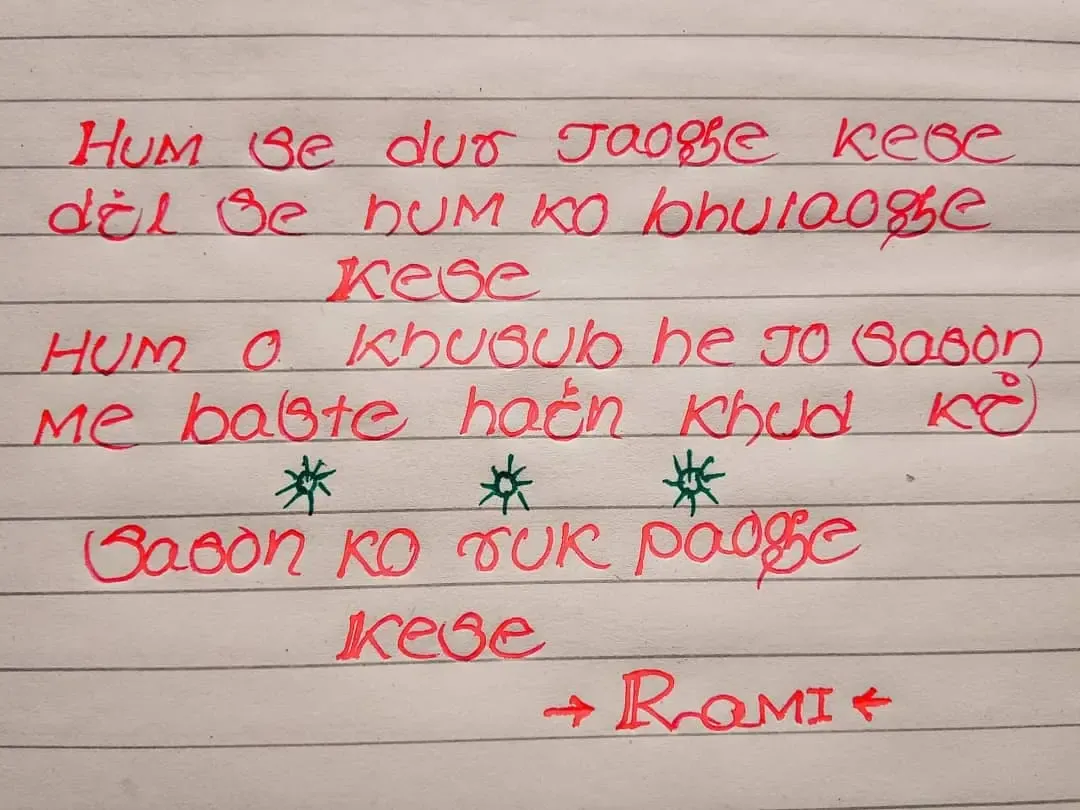 Hum se dur Jaogge kese
dil se hum ko bhulaogge
kese
Hum o khusub he Jo sason
me baste hain khud ki
sason ko ruk paogge
kese
→ Rami ←